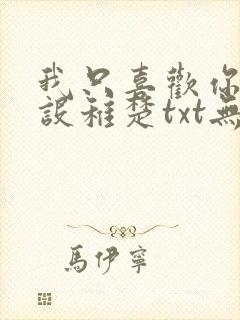 我只喜歡你
設稚楚txt無
馬伊寧